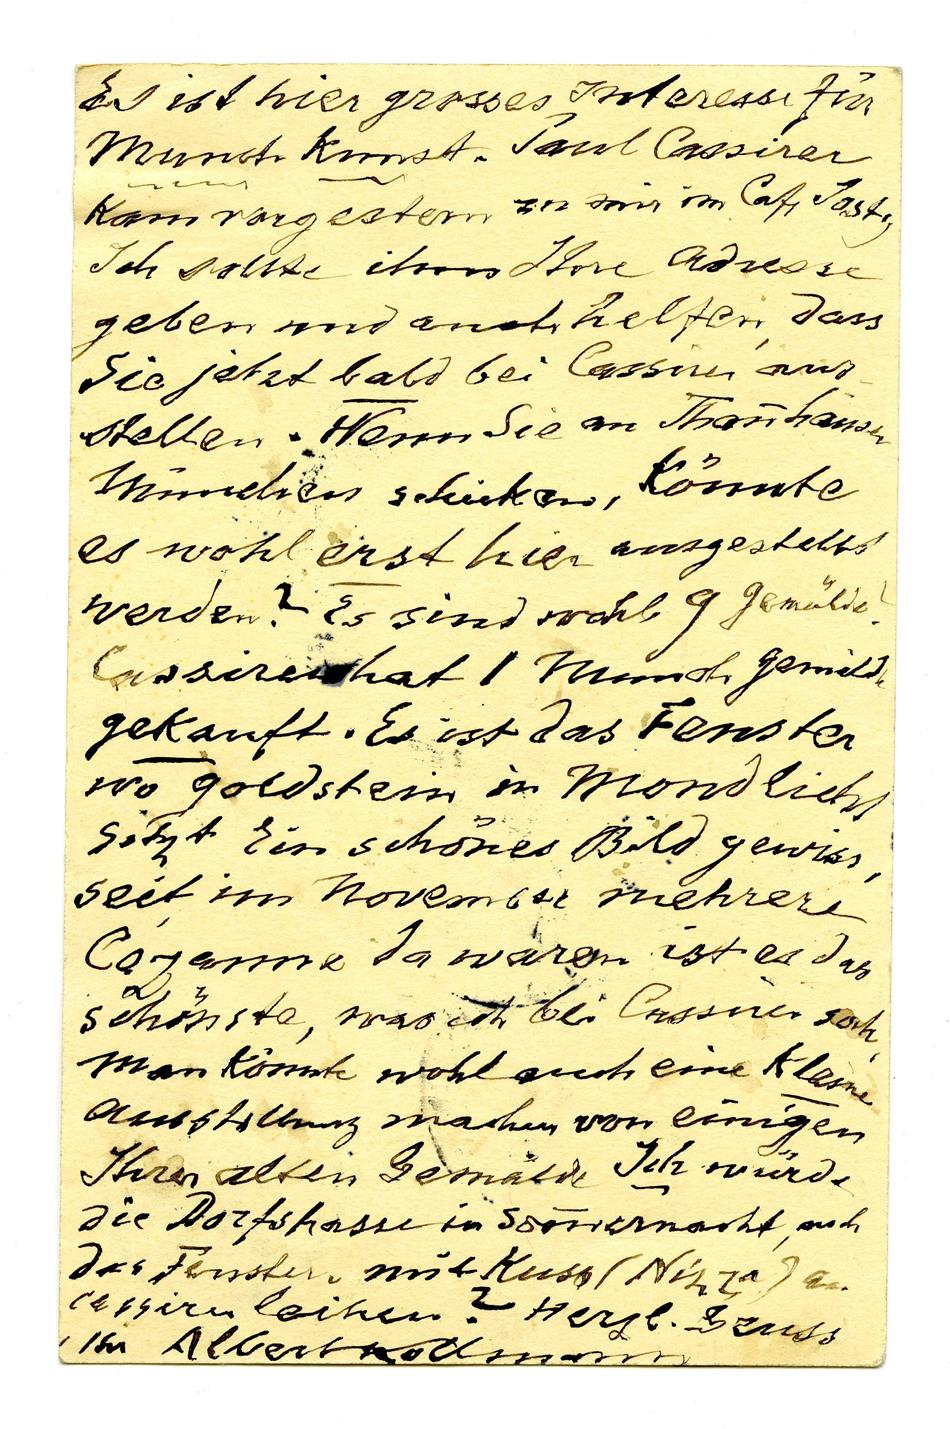 Es ist hier grosses Interesse für
Munch Kunst. Paul Cassirer
kam vorgestern zu mir im Caf. Josty
Ich sollte ihm Ihre Adresse
geben und auch helfen, dass
Sie jetzt bald bei Cassirer aus-
stellen. Wenn Sie an Thannhäuser
München schicken, könnte
es wohl erst hier ausgestellt
werden? Es sind wohl 9 Gemälde?
Cassirer hat 1 Munch Gemälde
gekauft. Es ist das Fenster
wo Goldstein in Mondlicht
sitzt Ein schönes Bild gewiss,
seit im November mehrere
Cezanne da waren ist es das
schönste, was ich bei Cassirer sah,
Man könnte wohl auch eine kleine
Ausstellung machen von einigen
Ihrer alten Gemälde Ich würde
die Dorfstrasse in Som̄ernacht, auch
das Fenster mit Kuss (Nizza) an
Cassirer leihen? Herzl. Gruss
Ihr Albert Kollmann